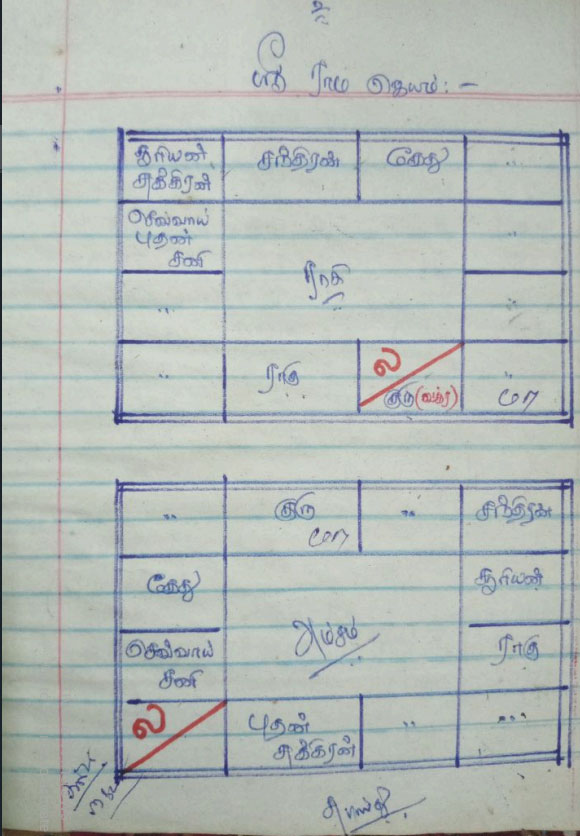 உ
ஸ்ரீ ராம ஜெயம்:-
சூரியன் சந்திரன் கேது "
சுக்கிரன்
செவ்வாய் "
புதன்
சனி
ராசி
" "
" ராகு ல "
குரு (வக்ர) மா
" குரு " சந்திரன்
மா
கேது சூரியன்
அம்சம்
செவ்வாய் ராகு
சனி
ல புதன் " "
சுக்கிரன்